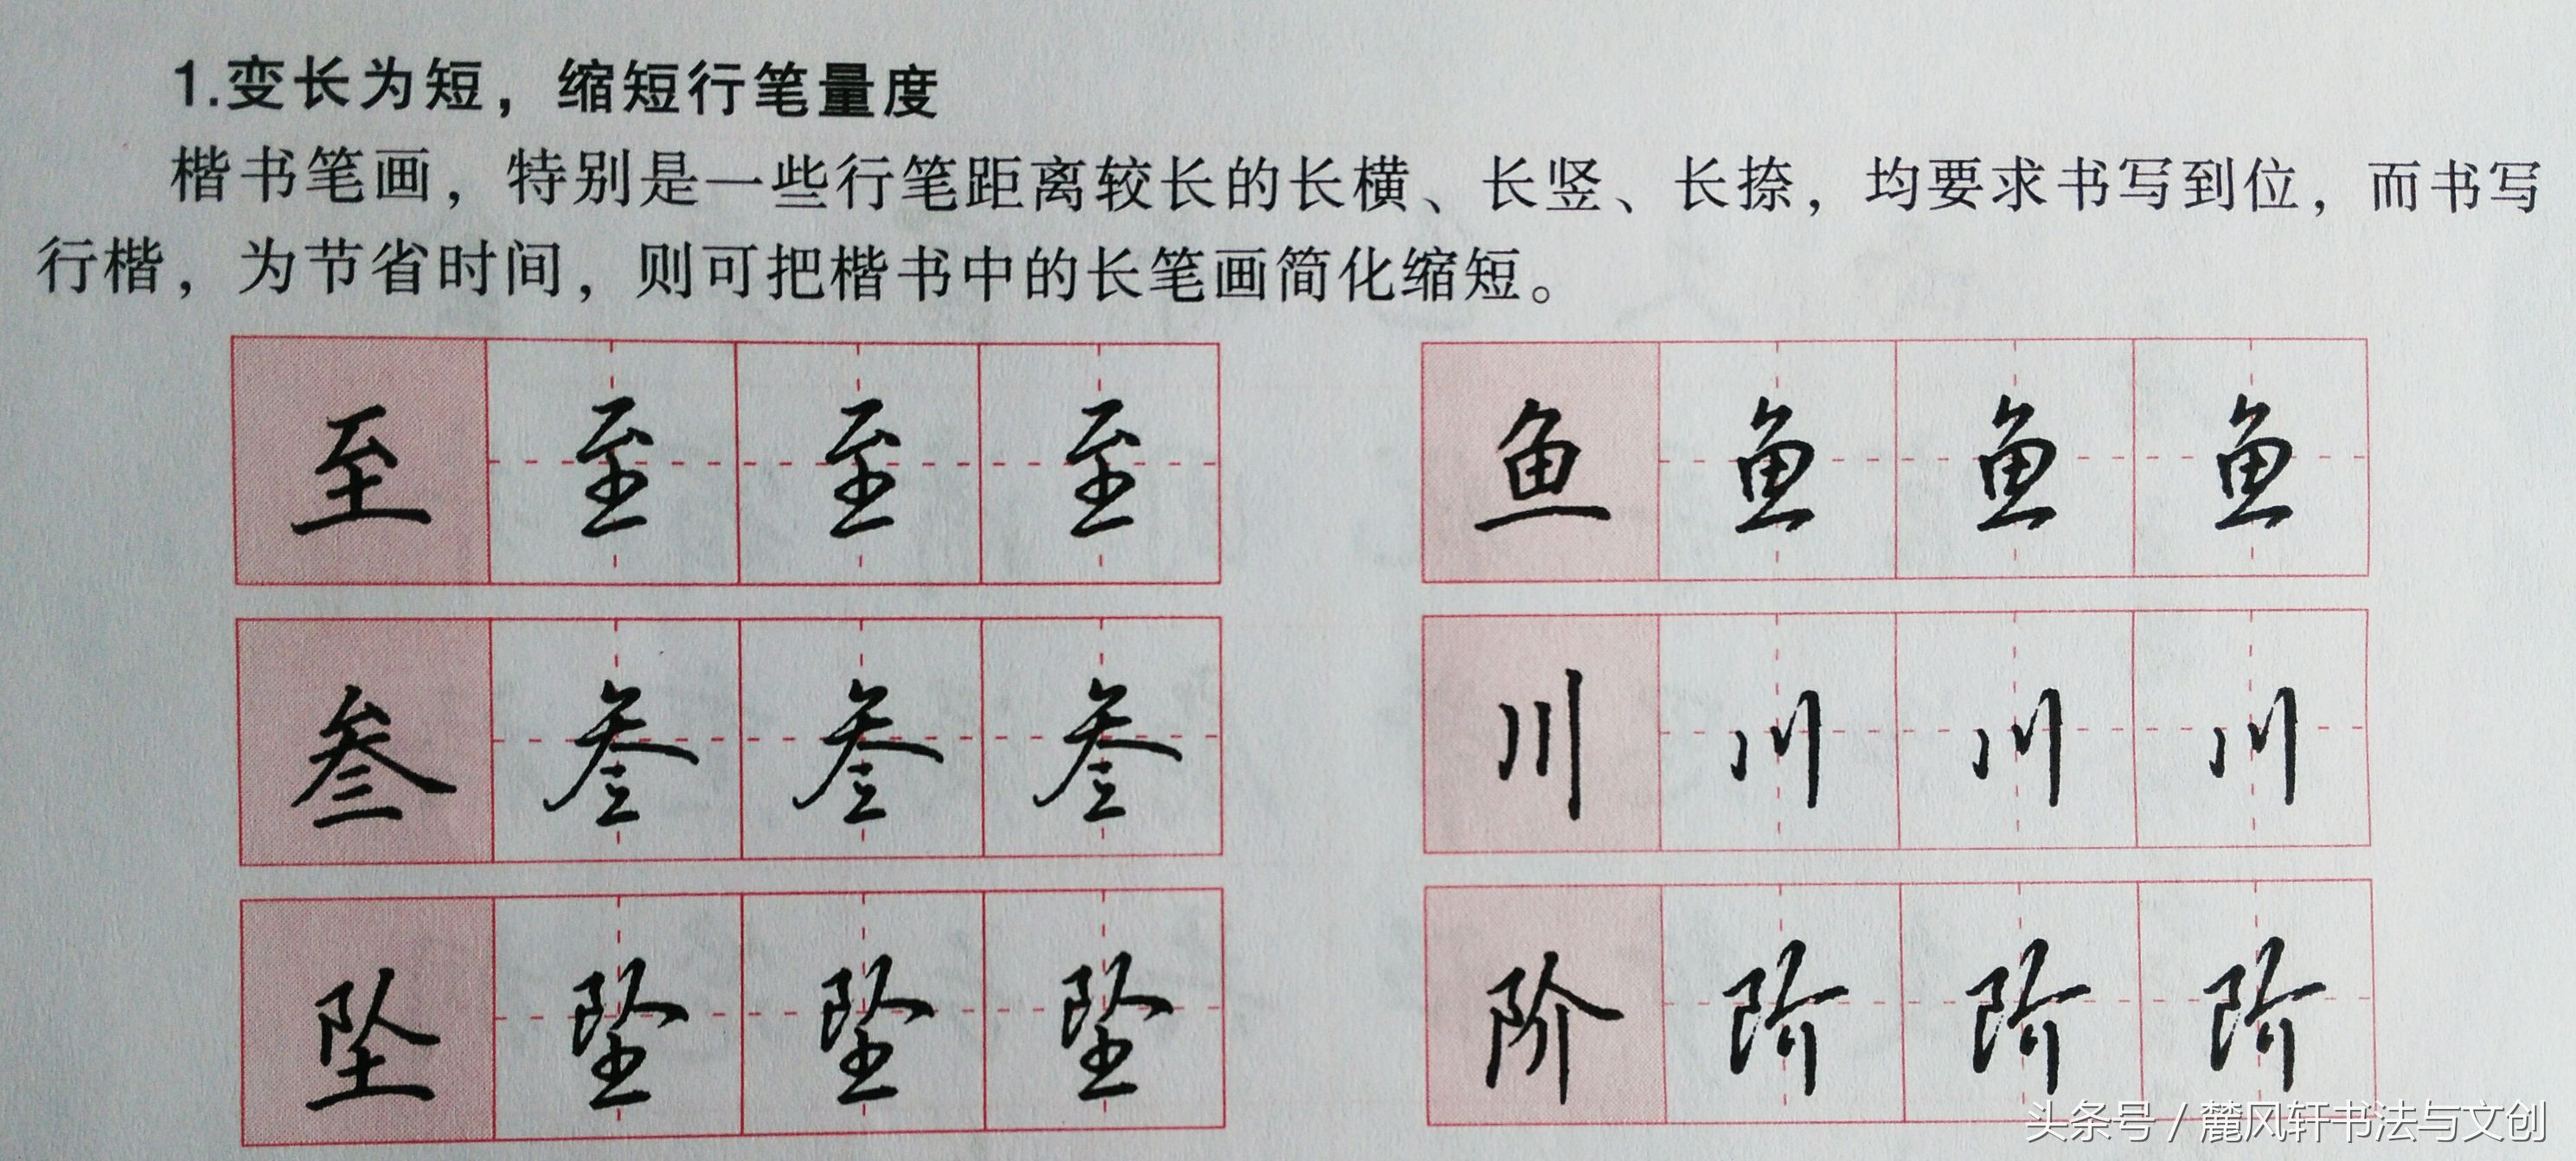 1.变长为短，缩短行笔量度
楷书笔画，特别是一些行笔距离较长的长横、长竖、长捺，均要求书写到位，而书写
行楷，为节省时间，则可把楷书中的长笔画简化缩短。
至 至 至 至 鱼 鱼 鱼 鱼
叁 叁 叁 叁 川 川 川 川
坠 坠 坠 坠 阶 阶 阶 阶
头条号 / 麓风轩书法与文创